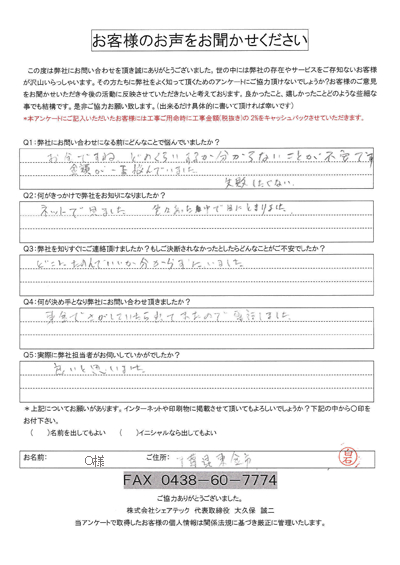 お客様のお声をお聞かせください
この度は弊社にお問い合わせを頂き誠にありがとうございました。世の中には弊社の存在やサービスをご存知ないお客様
が沢山いらっしゃいます。その方たちに弊社をよく知って頂くためのアンケートにご協力頂けないでしょうか?お客様のご意見
をお聞かせいただき今後の活動に反映させていただきたいと考えております。良かったこと、嬉しかったことどのような些細な
事でも結構です。是非ご協力お願い致します。(出来るだけ具体的に書いて頂ければ幸いです)
*本アンケートにご記入いただいたお客様には工事ご用命時に工事金額(税抜き)の 2%をキャッシュバックさせていただきます。
Q1:弊社にお問い合わせになる前にどんなことで悩んでいましたか?
お金ですね どれくらいするか分からないことが不安で
金額が一番悩んでいました。
失敗したくない
Q2:何がきっかけで弊社をお知りになりましたか?
ネットで見ました 目にとまりました
Q3:弊社を知りすぐにご連絡頂けましたか?もしご決断されなかったとしたらどんなことがご不安でしたか?
どこにたのんでいいか分からずにいました
Q4:何が決め手となり弊社にお問い合わせ頂きましたか?
東金でさがしていたら出てきたので電話しました
Q5:実際に弊社担当者がお伺いしていかがでしたか?
良いと思いました
*上記についてお願いがあります。インターネットや印刷物に掲載させて頂いてもよろしいでしょうか?下記の中から〇印を
お付下さい。
( )名前を出してもよい ( )イニシャルなら出してもよい
お名前: O様 ご住所: 千葉県東金市 白石
FAX 0438-60-7774
ご協力ありがとうございました。
株式会社シェアテック 代表取締役 大久保 誠二
当アンケートで取得したお客様の個人情報は関係法規に基づき厳正に管理いたします。